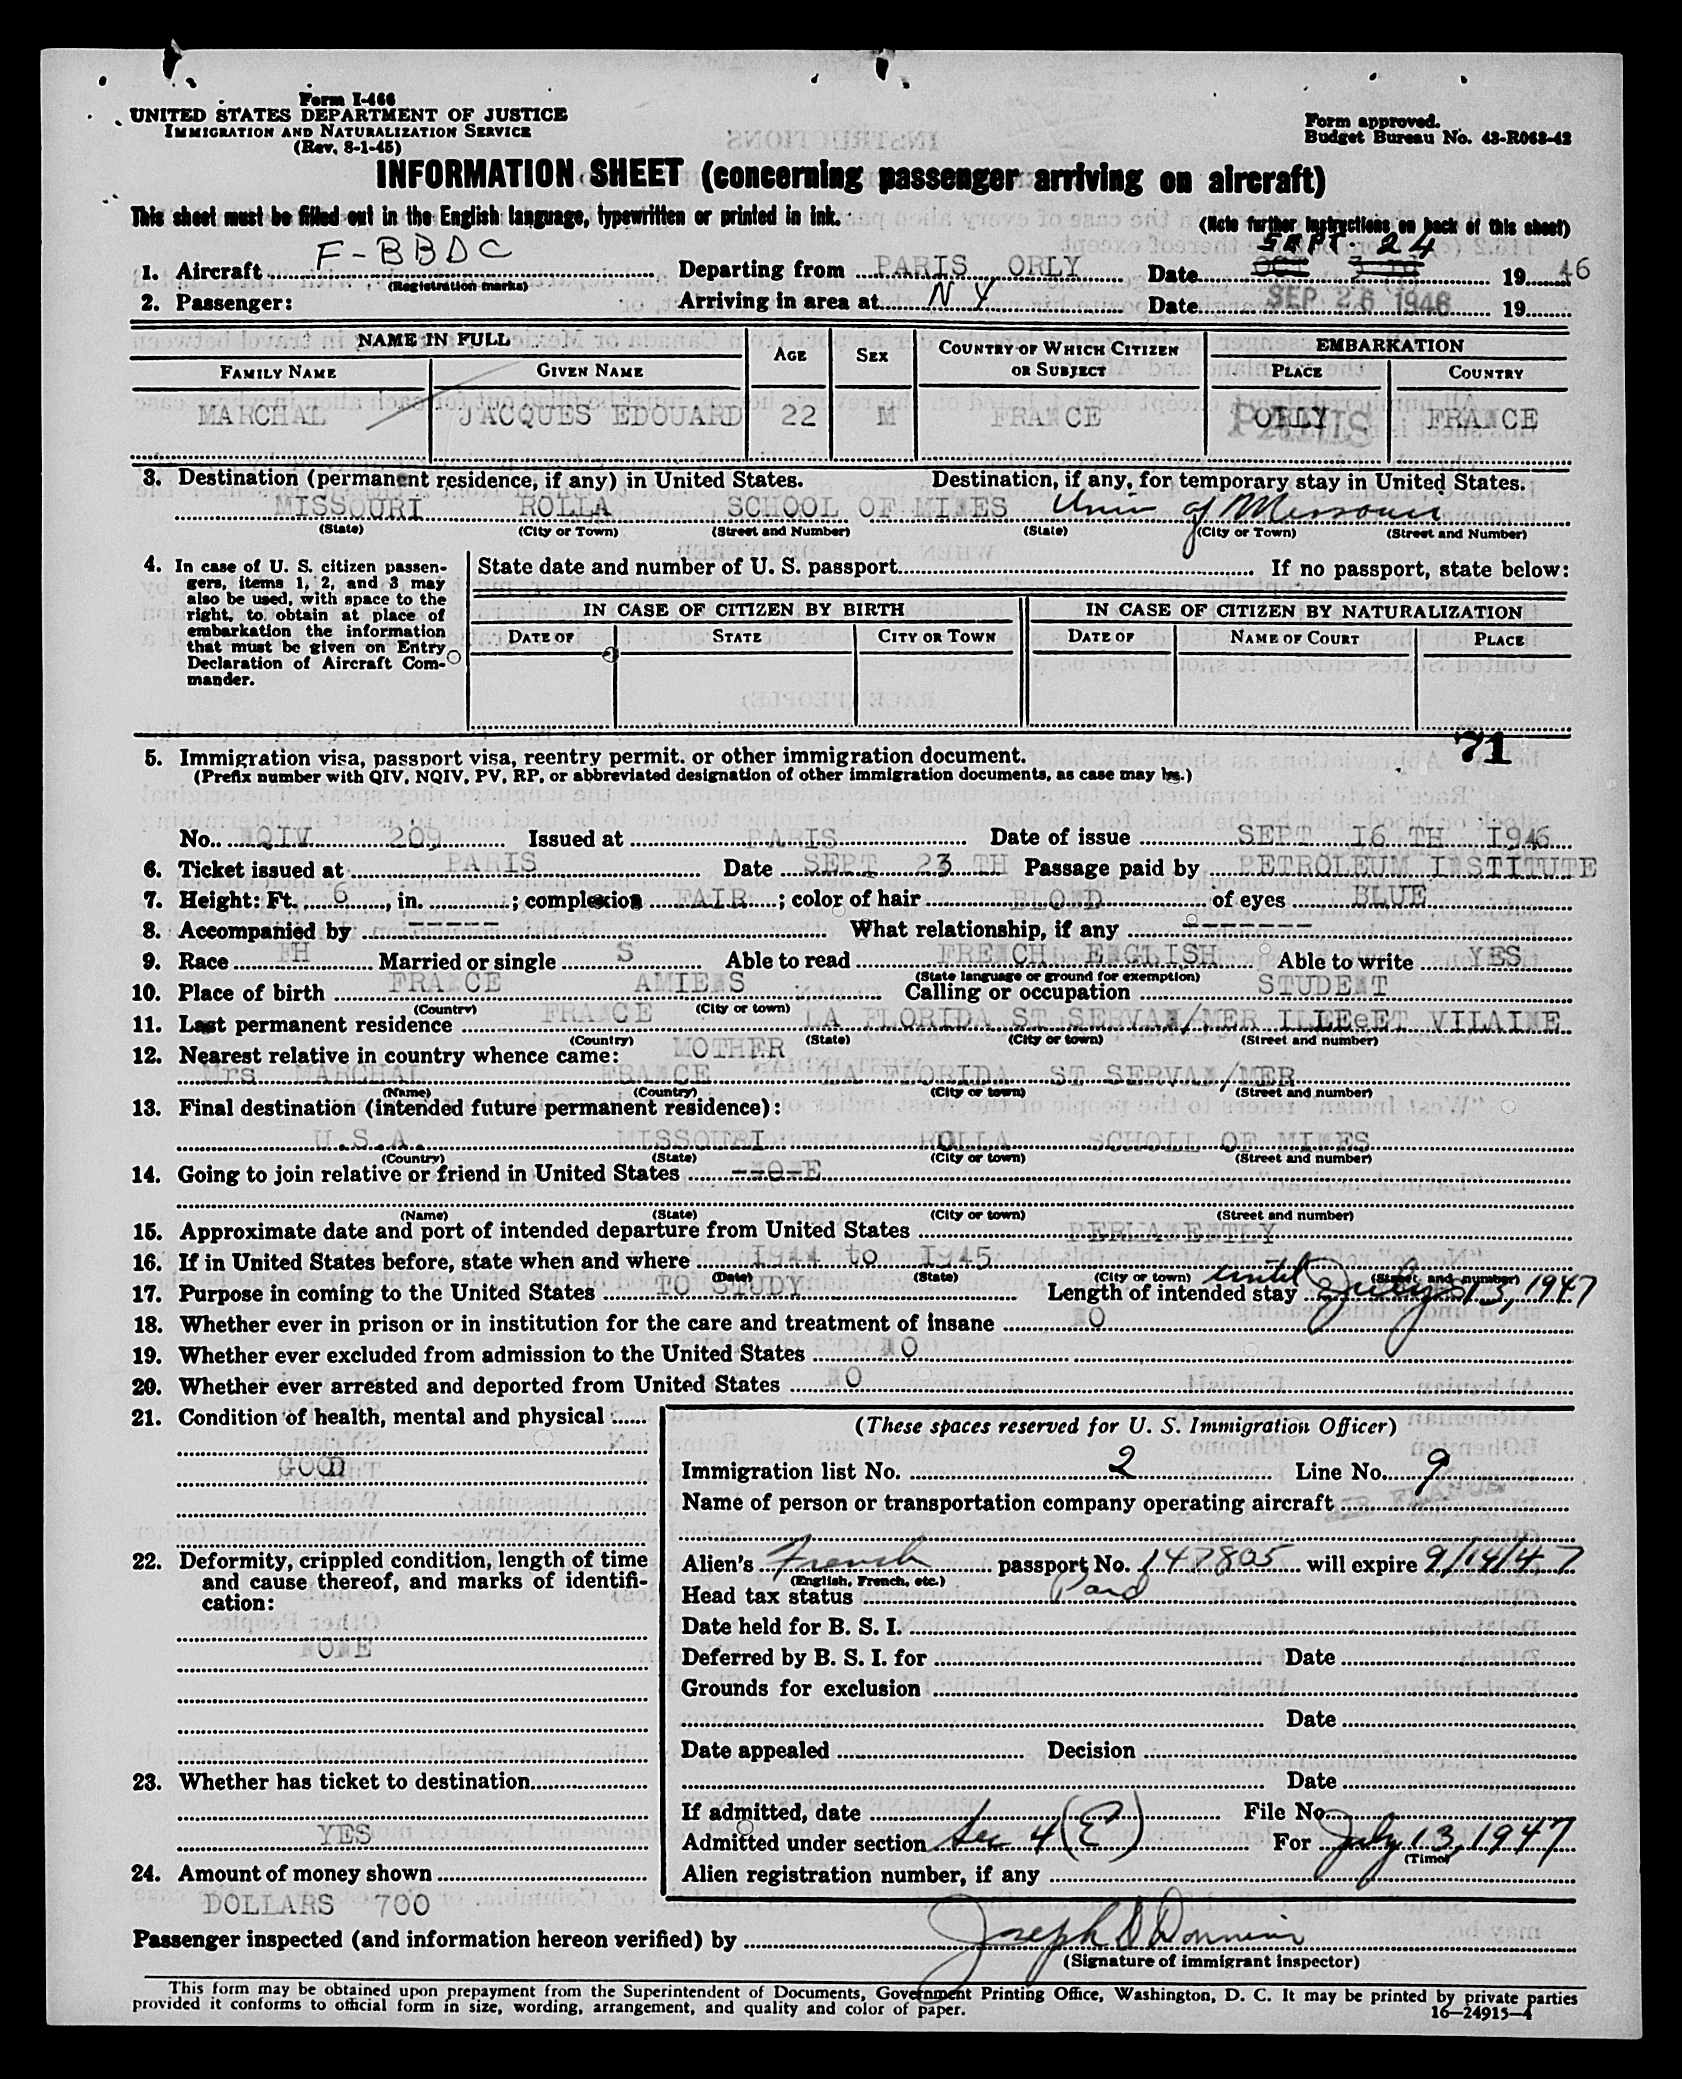 Form I-466
UNITED STATES DEPARTMENT OF JUSTICE
IMMIGRATION AND NATURALIZATION SERVICE
(Rev. 8-1-45)
Form approved.
Budget Bureau No. 43-R063-42
INFORMATION SHEET (concerning passenger arriving on aircraft)
This sheet must be filled out in the English language, typewritten or printed in ink.
(Note further instructions on back of this sheet)
SEPT. 24
1. Aircraft F-BBDC Departing from PARIS ORLY Date 1946
(Registration marks)
2. Passenger: Arriving in area at NY Date SEP 26 1946 19
NAME IN FULL AGE SEX COUNTRY OF WHICH CITIZEN OR SUBJECT EMBARKATION
FAMILY NAME GIVEN NAME PLACE COUNTRY
MARCHAL JACQUES EDOUARD 22 M FRANCE ORLY PARIS FRANCE
3. Destination (permanent residence, if any) in United States. Destination, if any, for temporary stay in United States.
MISSOURI ROLLA SCHOOL OF MINES Univ of Missouri
(State) (City or Town) (Street and Number) (State) (City or Town) (Street and Number)
4. In case of U. S. citizen passengers, items 1, 2, and 3 may also be used, with space to the right, to obtain at place of embarkation the information that must be given on Entry Declaration of Aircraft Commander.
State date and number of U. S. passport If no passport, state below:
IN CASE OF CITIZEN BY BIRTH IN CASE OF CITIZEN BY NATURALIZATION
DATE OF STATE CITY OR TOWN DATE OF NAME OF COURT PLACE
71
5. Immigration visa, passport visa, reentry permit, or other immigration document.
(Prefix number with QIV, NQIV, PV, RP, or abbreviated designation of other immigration documents, as case may be.)
No. NQIV 209 Issued at PARIS Date of issue SEPT 16 TH 1946
6. Ticket issued at PARIS Date SEPT 23 TH Passage paid by PETROLEUM INSTITUTE
7. Height: Ft. 6, in. ; complexion FAIR; color of hair BLOND of eyes BLUE
8. Accompanied by ----- What relationship, if any -------
9. Race FH Married or single S Able to read FRENCH ENGLISH Able to write YES
(State language or ground for exemption)
10. Place of birth FRANCE AMIENS Calling or occupation STUDENT
(Country) (City or town)
11. Last permanent residence FRANCE LA FLORIDA ST SERVAN/MER ILLEeET VILAINE
(Country) (State) (City or town) (Street and number)
12. Nearest relative in country whence came: MOTHER
Mrs MARCHAL FRANCE LA FLORIDA ST SERVAN/MER
(Name) (Country) (City or town) (Street and number)
13. Final destination (intended future permanent residence):
U.S.A. MISSOURI ROLLA SCHOLL OF MINES
(Country) (State) (City or town) (Street and number)
14. Going to join relative or friend in United States
(Name) (State) (City or town) (Street and number)
15. Approximate date and port of intended departure from United States PERLANENTLY
16. If in United States before, state when and where 1944 to 1945
(Date) (State) (City or town) (Street and number)
17. Purpose in coming to the United States TO STUDY Length of intended stay until July 13, 1947
18. Whether ever in prison or in institution for the care and treatment of insane NO
19. Whether ever excluded from admission to the United States NO
20. Whether ever arrested and deported from United States NO
21. Condition of health, mental and physical
GOOD
22. Deformity, crippled condition, length of time and cause thereof, and marks of identification:
NONE
23. Whether has ticket to destination
YES
24. Amount of money shown
DOLLARS 700
(These spaces reserved for U. S. Immigration Officer)
Immigration list No. 2 Line No. 9
Name of person or transportation company operating aircraft AIR FRANCE
Alien's French passport No. 147805 will expire 9/14/47
(English, French, etc.)
Head tax status Paid
Date held for B. S. I.
Deferred by B. S. I. for Date
Grounds for exclusion
Date
Date appealed Decision
Date
If admitted, date File No.
Admitted under section Sec 4(E) For July 13, 1947
(Time)
Alien registration number, if any
Passenger inspected (and information hereon verified) by Joseph
(Signature of immigrant inspector)
This form may be obtained upon prepayment from the Superintendent of Documents, Government Printing Office, Washington, D. C. It may be printed by private parties
provided it conforms to official form in size, wording, arrangement, and quality and color of paper.
16—24915-4